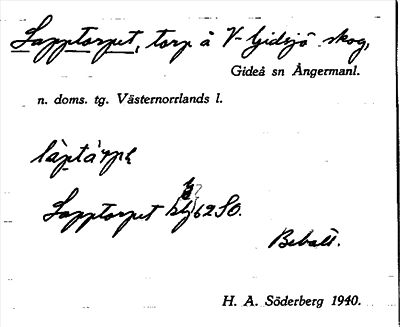 Lapptorpet, torp å V-Gidsjö skog,
Gideå sn Ångermanl.
n. doms. tg. Västernorrlands l.
làptà'rpɛ
Lapptorpet blj 62 SO.
Bebott.
H. A. Söderberg 1940.